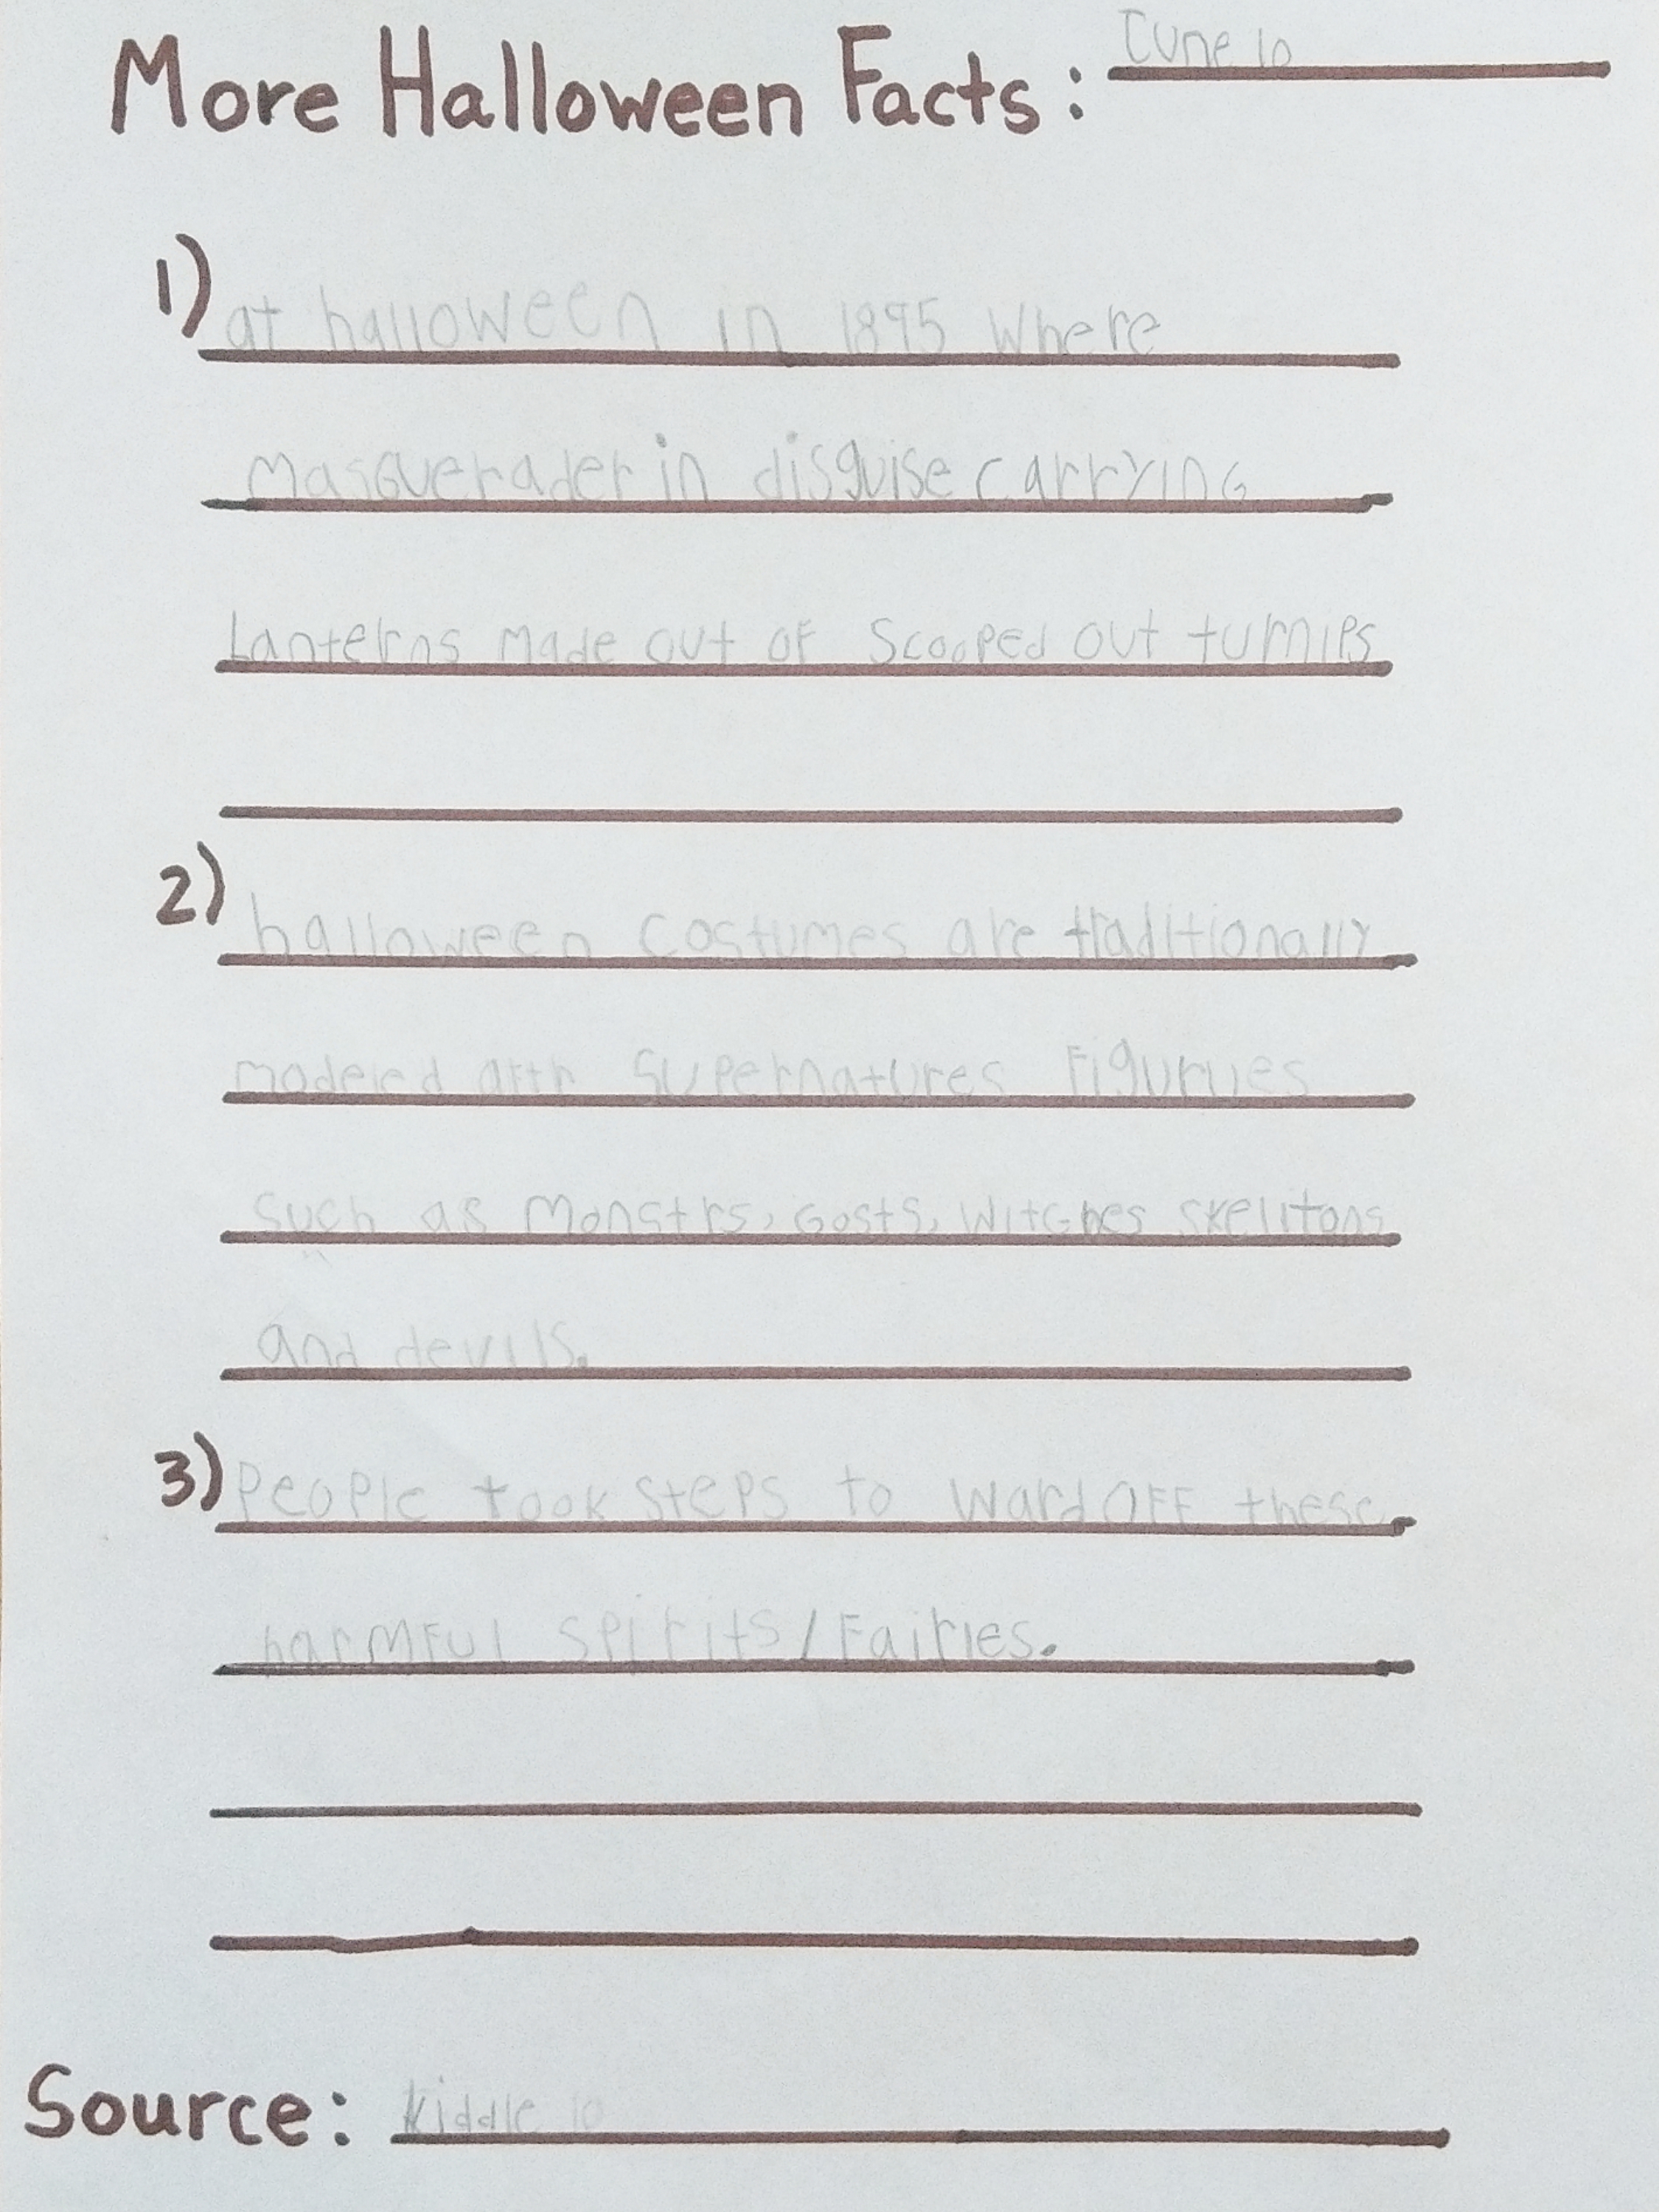 More Halloween Facts: June 10
1) at halloween in 1895 where
masquerader in disguise carrying
Lanterns made out of scooped out turnips
2) halloween costumes are traditionally
modeled aftr supernatures Figurues
such as Monstrs, Gosts, Witches skelitons
and devils.
3) People took steps to ward off these
harmful spirits/Fairies.
Source: Kiddle